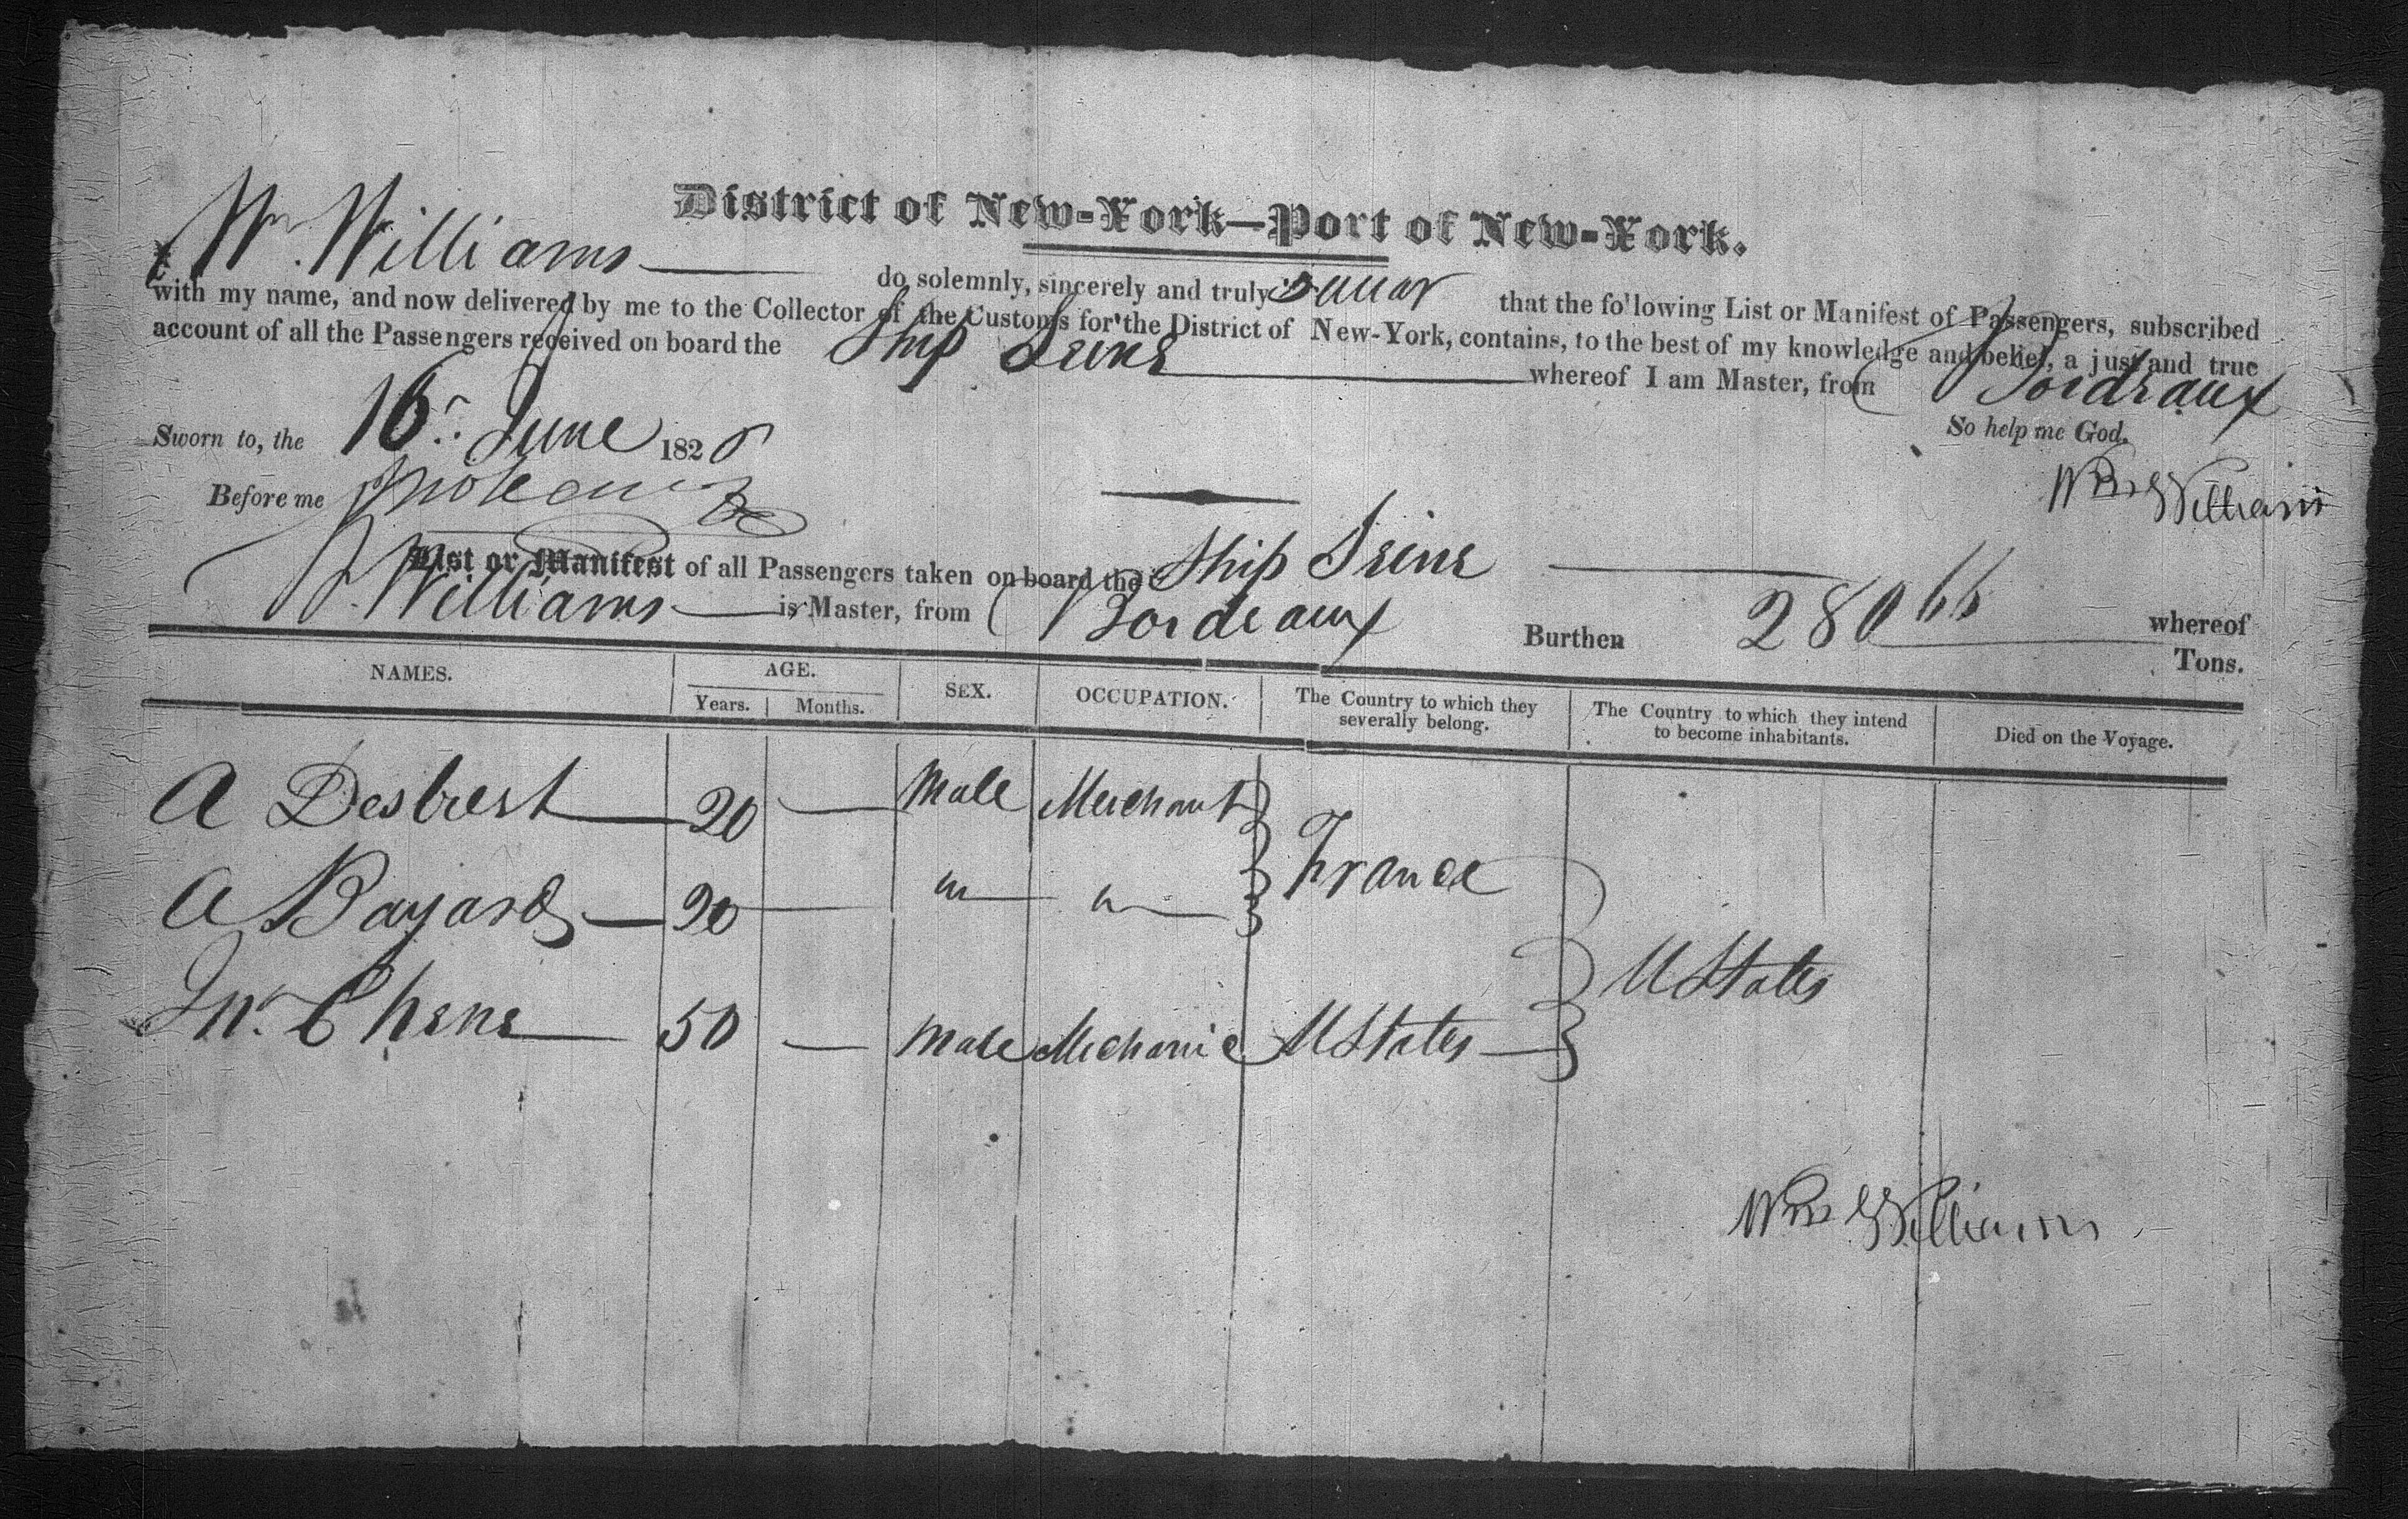 District of New-York—Port of New-York.
I, Wm. Williams do solemnly, sincerely and truly swear that the following List or Manifest of Passengers, subscribed
with my name, and now delivered by me to the Collector of the Customs for the District of New-York, contains, to the best of my knowledge and belief, a just and true
account of all the Passengers received on board the Ship Seine whereof I am Master, from Bordeaux
So help me God.
Sworn to, the 16 June 182
Before me
Wm Williams
List or Manifest of all Passengers taken on board the Ship Seine whereof
W. Williams is Master, from Bordeaux Burthen 280 66 Tons.
NAMES. AGE. SEX. OCCUPATION. The Country to which they severally belong. The Country to which they intend to become inhabitants. Died on the Voyage.
Years. Months.
A Desbrest 20 — Male Merchant } France
A Bayard 20 — " " }
Jn. Chene 50 — Male Mechanic U States } U States
Wm Williams